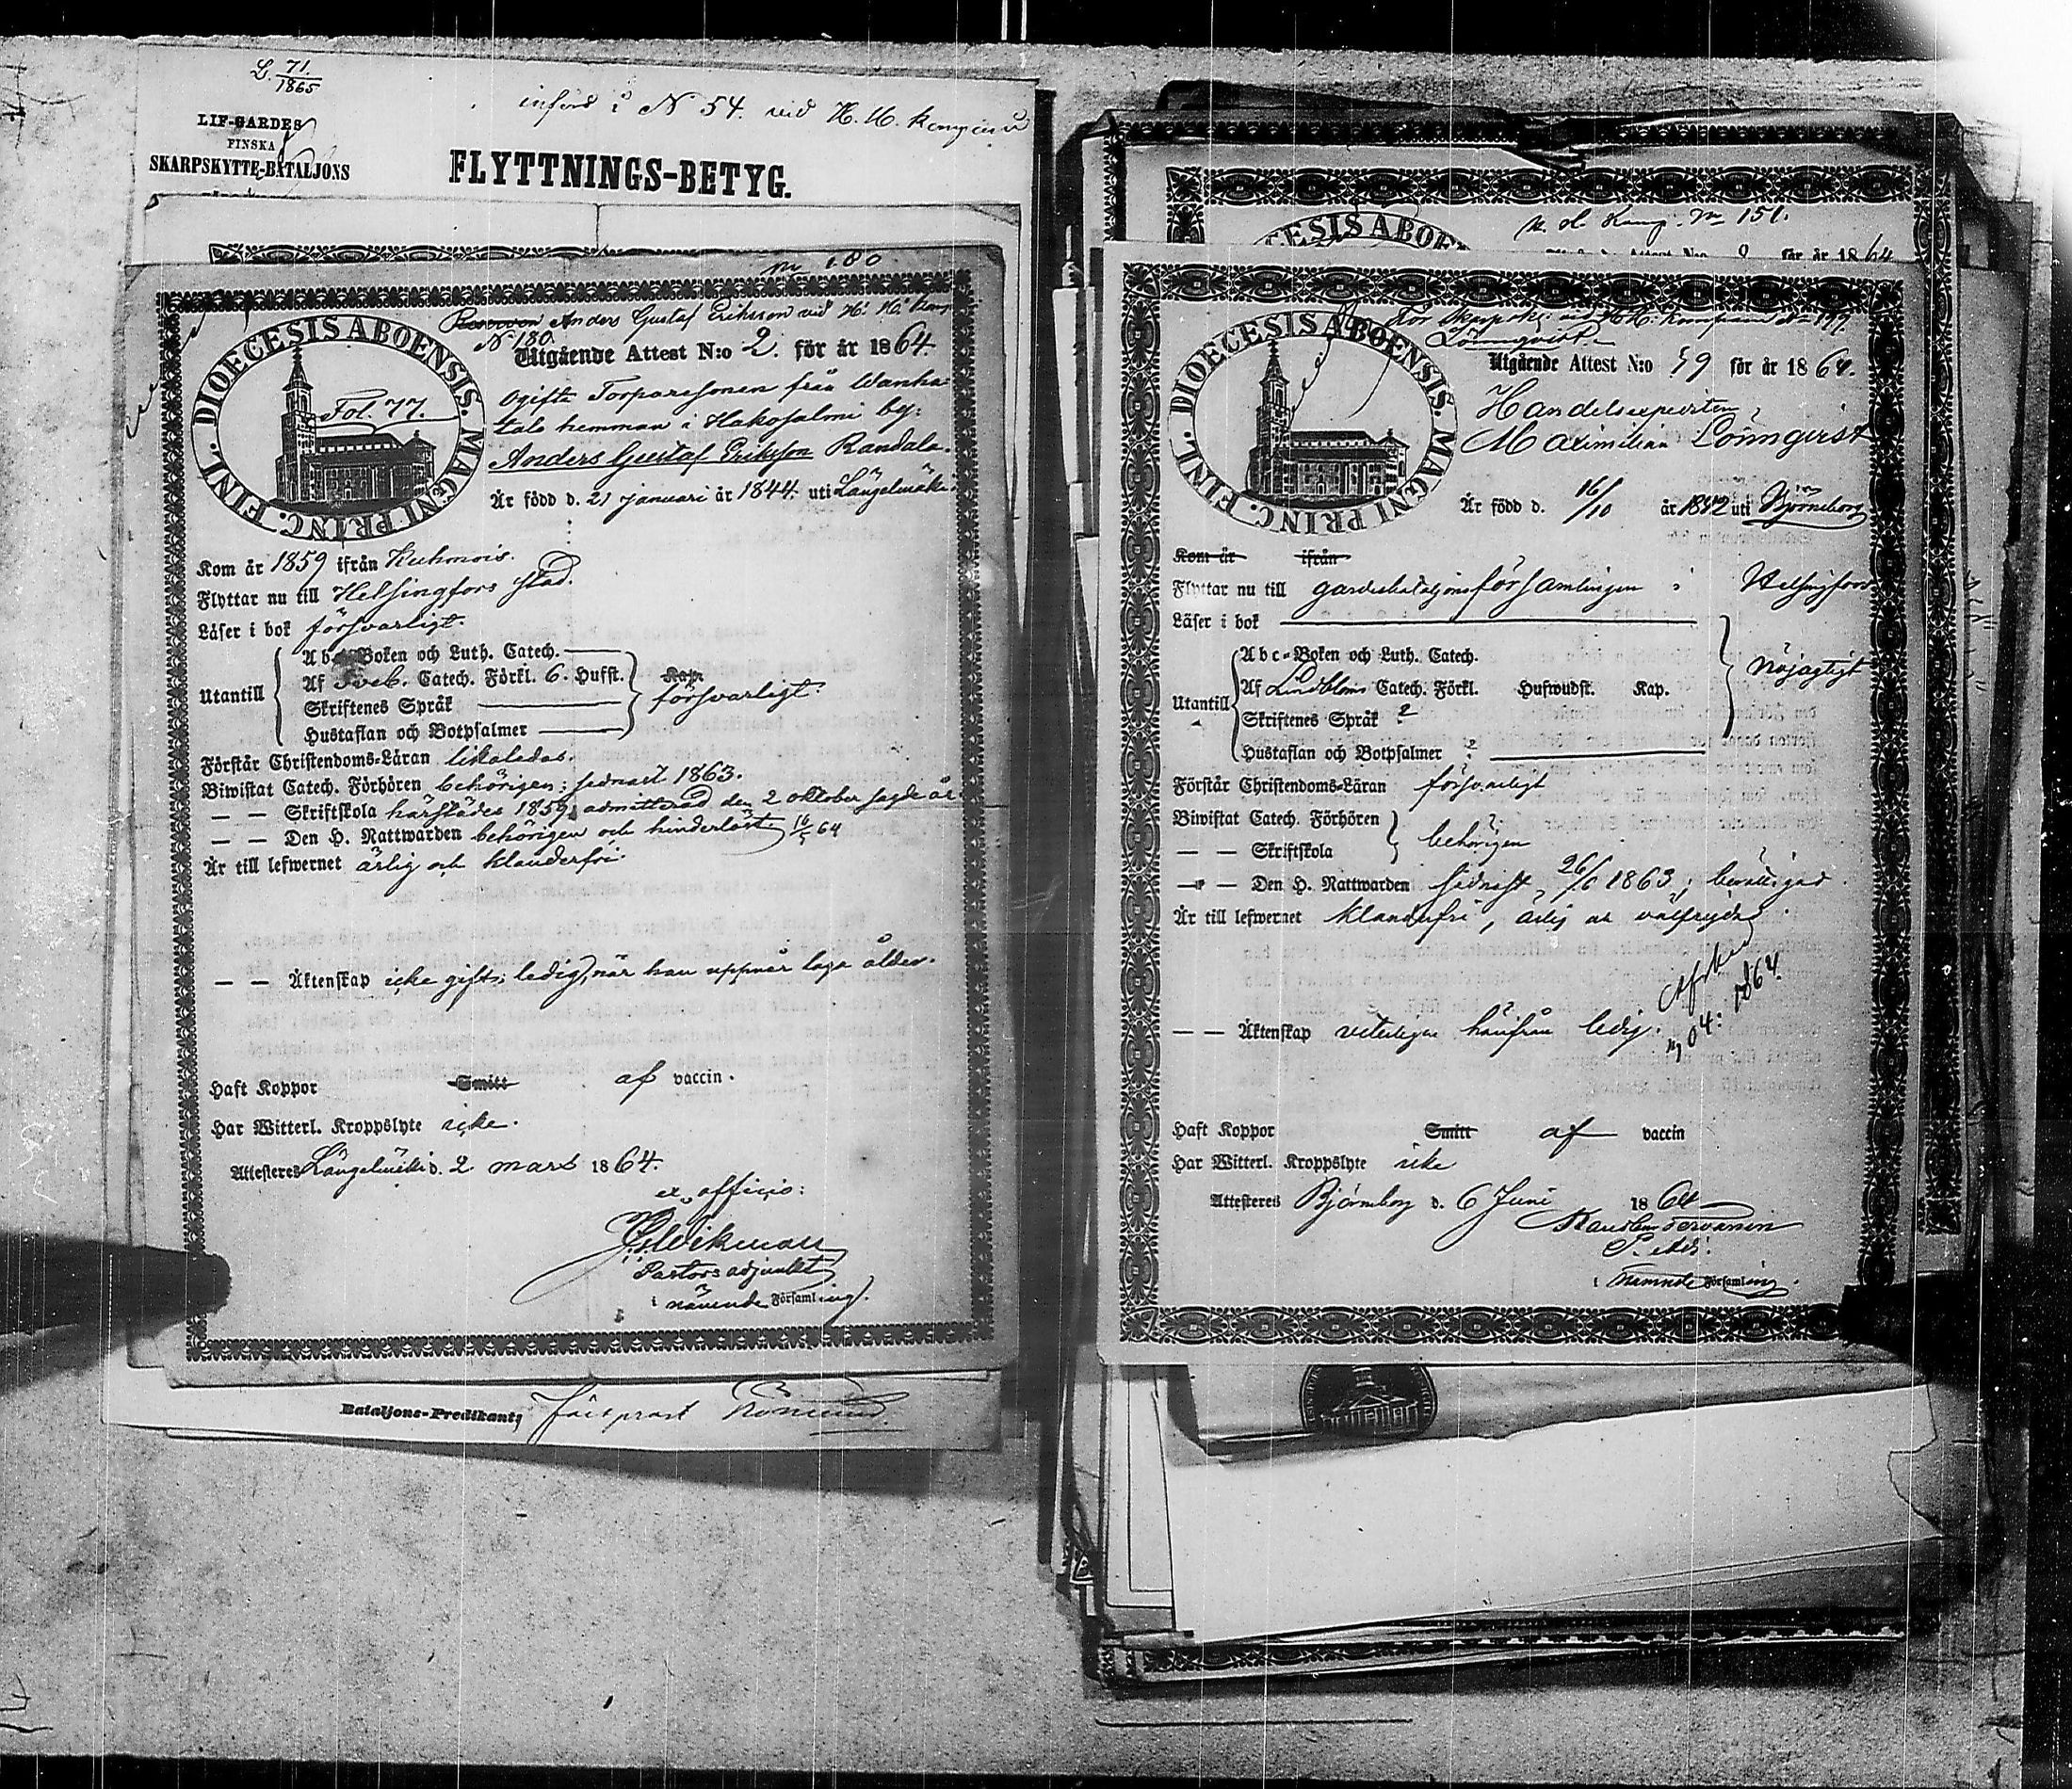 L. 71/1865
införd i N 54. vid H. H. Kompani
LIF-GARDES
FINSKA
SKARPSKYTTE-BATALJONS
FLYTTNINGS-BETYG.
No 180
Anders Gustaf Eriksson vid H. H. Komp
N 180.
Utgående Attest N:o 2. för år 1864.
DIOECESIS ABOENSIS. MAGNI PRINC. FINL.
Fol. 77.
Ogifte Torparesonen från Wanha-
talo hemman i Hakosalmi by:
Anders Gustaf Eriksson Randala.
Är född d. 21 januari år 1844. uti Längelmäki
Kom år 1859 ifrån Kuhmois.
Flyttar nu till Helsingfors stad.
Läser i bok försvarligt.
Utantill
Abc-Boken och Luth. Catech.
Af Sveb. Catech. Förkl. 6. Hufst. Kap.
försvarligt.
Skriftenes Språk
Hustaflan och Botpsalmer
Förstår Christendoms-Läran likaledes.
Biwistat Catech. Förhören behörigen; sednast 1863.
— — Skriftskola härstädes 1859; admitterad den 2 oktober sagde år.
— — Den H. Nattwarden behörigen och hinderlöst
Är till lefwernet ärlig och klanderfri.
— — Äktenskap icke gift; ledig, när han uppnår laga ålder.
Haft Koppor Smitt af vaccin.
Har Witterl. Kroppslyte icke.
Attesteres Längelmäki d. 2 mars 1864.
ex officio:
Wikman
Pastorsadjunkt
i nämnde Församling.
Bataljons-Predikant,
CESIS ABOEN
H. H. Komp. No 151.
för år 1864
För Skarpsk: vid H. H. Kompani No 199
Lönnqvist.
Utgående Attest N:o 59 för år 1864.
DIOECESIS ABOENSIS. MAGNI PRINC. FINL.
Handelsexpediten,
Maximilian Lönnqvist
Är född d. 16/10 år 1842 uti Björneborg
Kom år ifrån
Flyttar nu till gardesbataljonsförsamlingen i Helsingfors
Läser i bok
Utantill
Abc-Boken och Luth. Catech.
nöjagtigt
Af Lindbloms Catech. Förkl. Hufwudst. Kap.
Skriftenes Språk ?
Hustaflan och Botpsalmer ?
Förstår Christendoms-Läran försvarligt
Biwistat Catech. Förhören
behörigen
— — Skriftskola
— — Den H. Nattwarden sednast 26/6 1863; berättigad
Är till lefwernet klanderfri, ärlig och välfrejdad.
— — Äktenskap veterligen härifrån ledig.
1864.
Haft Koppor Smitt af vaccin
Har Witterl. Kroppslyte icke
Attesteres Björneborg d. 6 Juni 1864
i nämnde Församling.